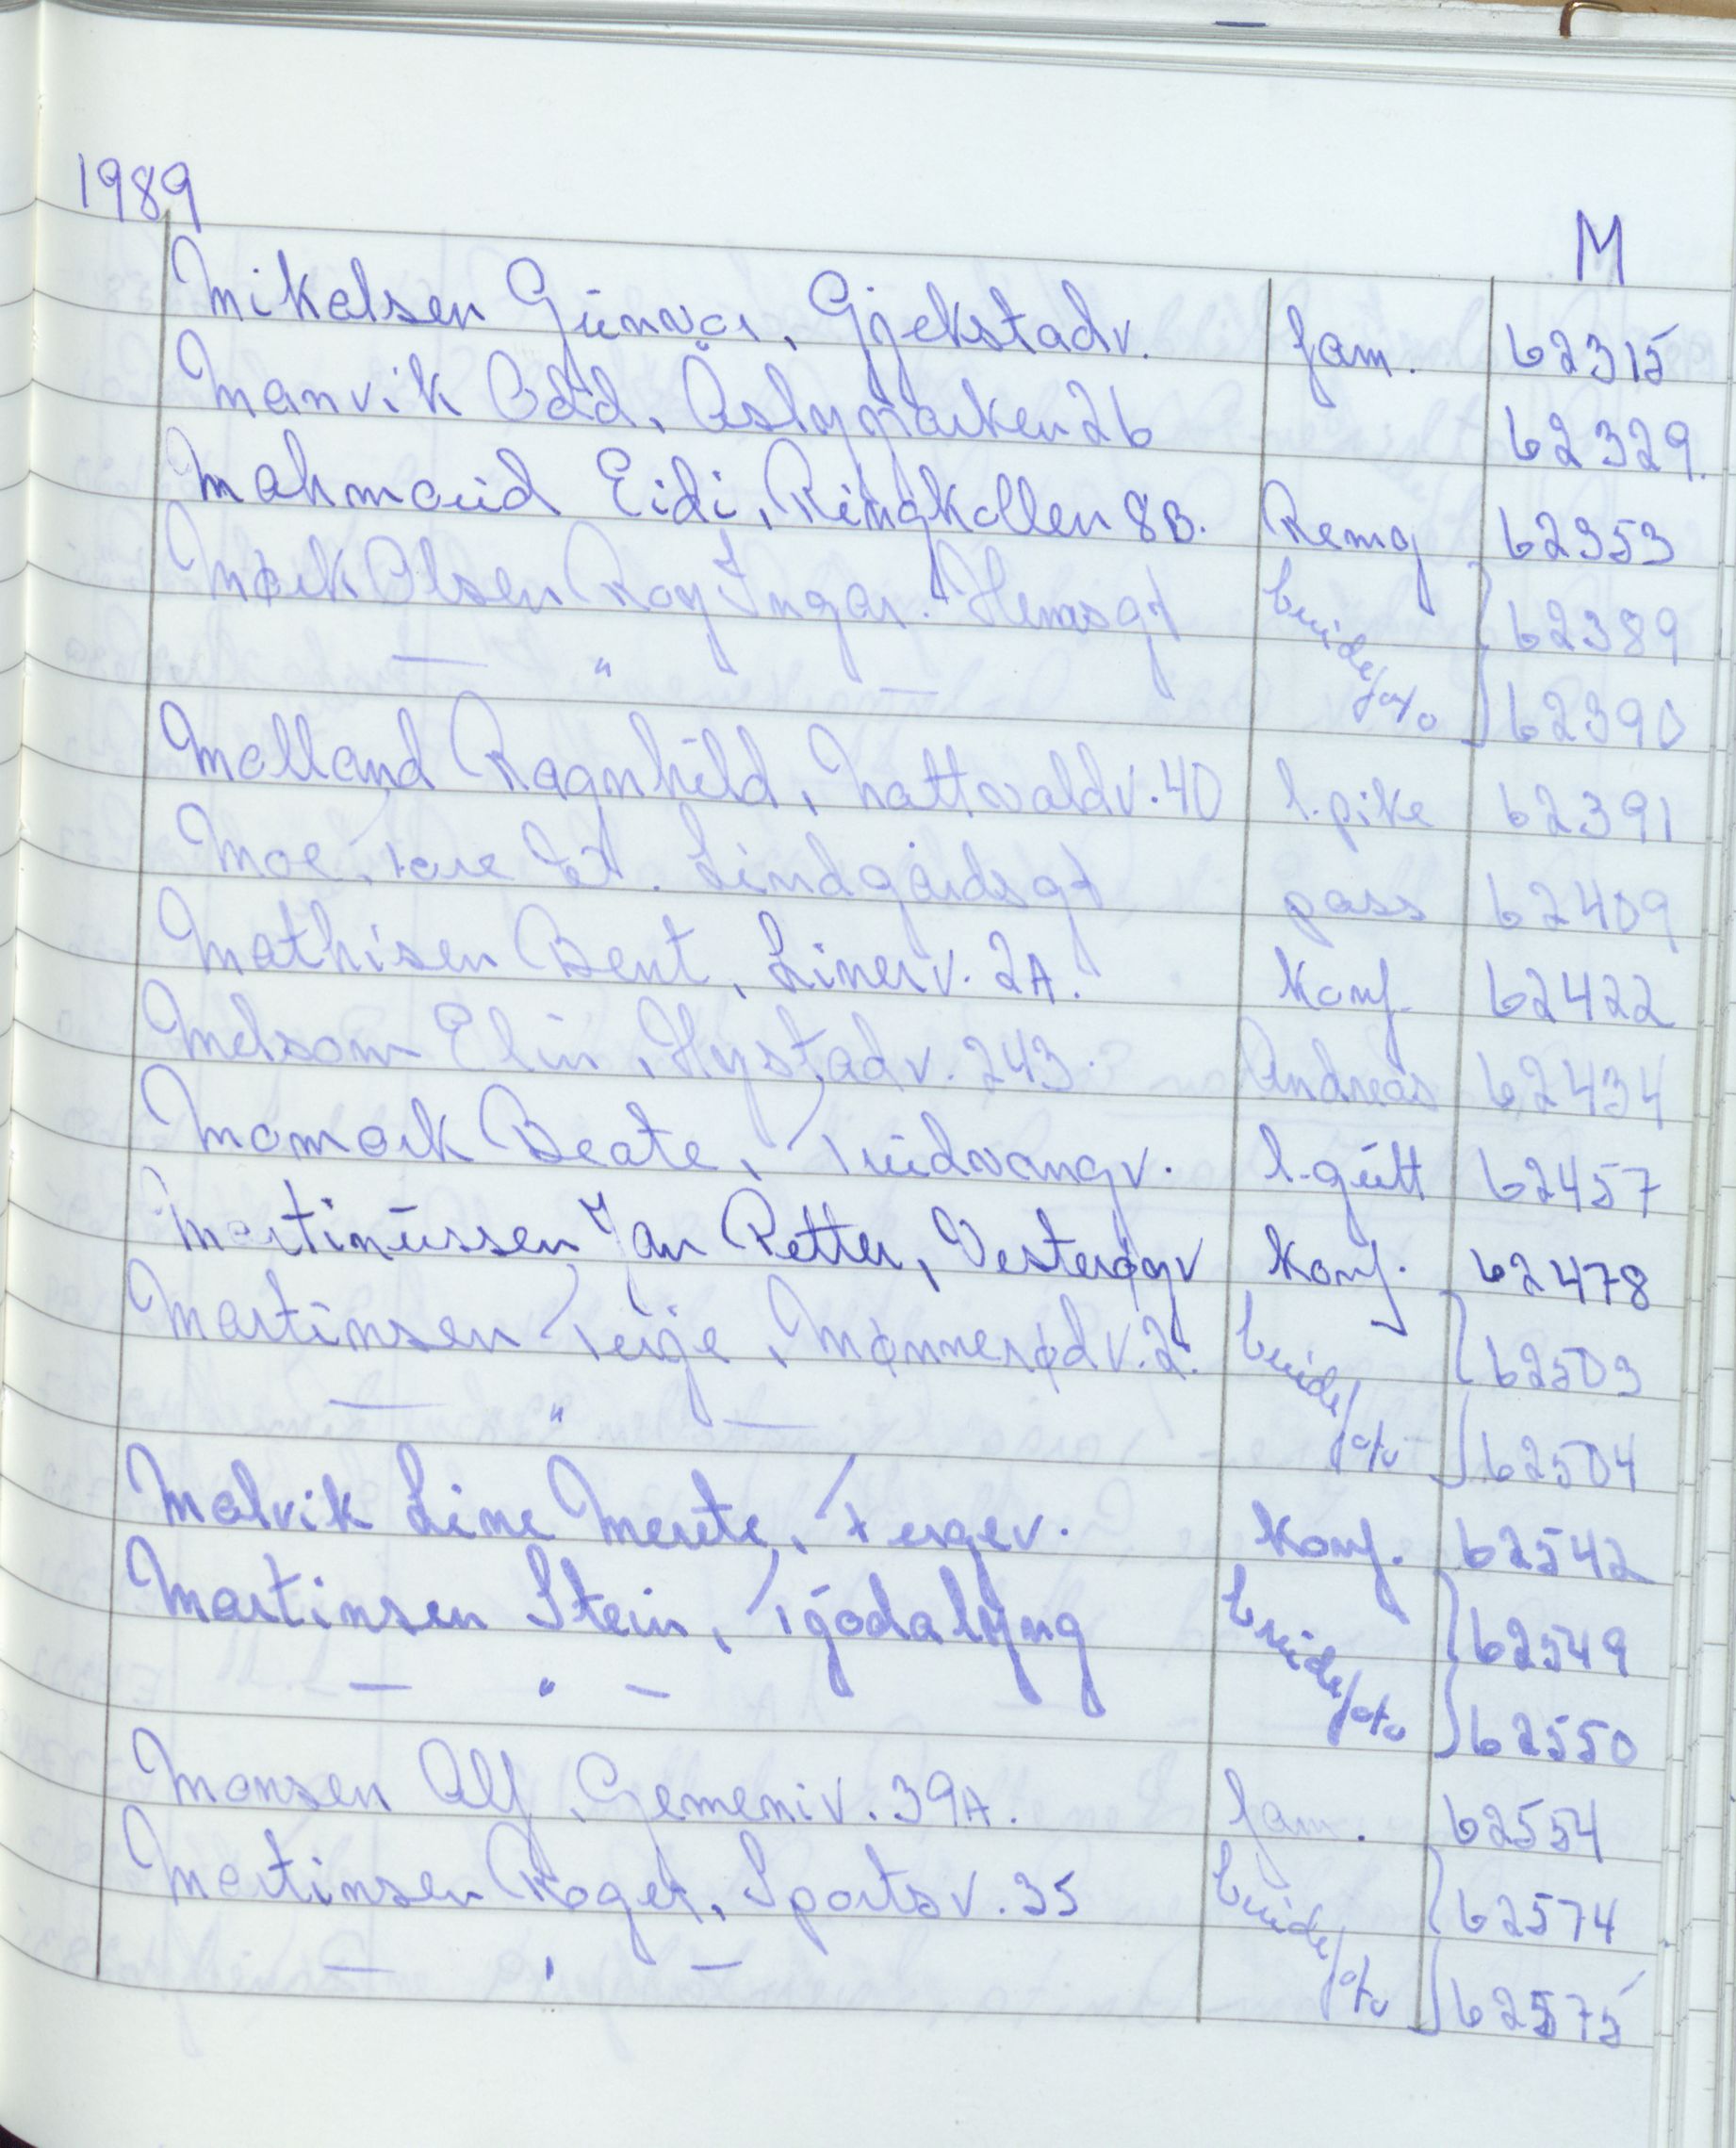 1989
M
Mikalsen Gunnar, Gjekstadv. fam. 62315
Manvik Odd, Åslyparken 26 62329.
Mahmoud Eidi, Ringkollen 8B. Remg 62353
Mørk Olsen Roy Ingar. Hemsgt brudefoto 62389
— " — 62390
Molland Ragnhild, Nattvaldv. 40 l.pike 62391
Moe, Tore Lindgårdsgt pass 62409
Mathisen Bent, Linerv. 2A. Konf. 62422
Melsom Elin, Hystadv. 243. Andreas 62434
Momark Beate, Trudvangv. l.gutt 62457
Martinussen Jan Petter, Vesterøyv Konf. 62478
Martinsen Terje, Mønnerødv. 2. brudefoto 62503
— " — 62504
Malvik Line Merete, Fergev. Konf. 62542
Martinsen Stein, Tjodalyng brudefoto 62549
— " — 62550
Monsen Alf, Gemeniv. 39A. fam. 62554
Martinsen Roger, Sportsv. 35 brudefoto 62574
— " — 62575